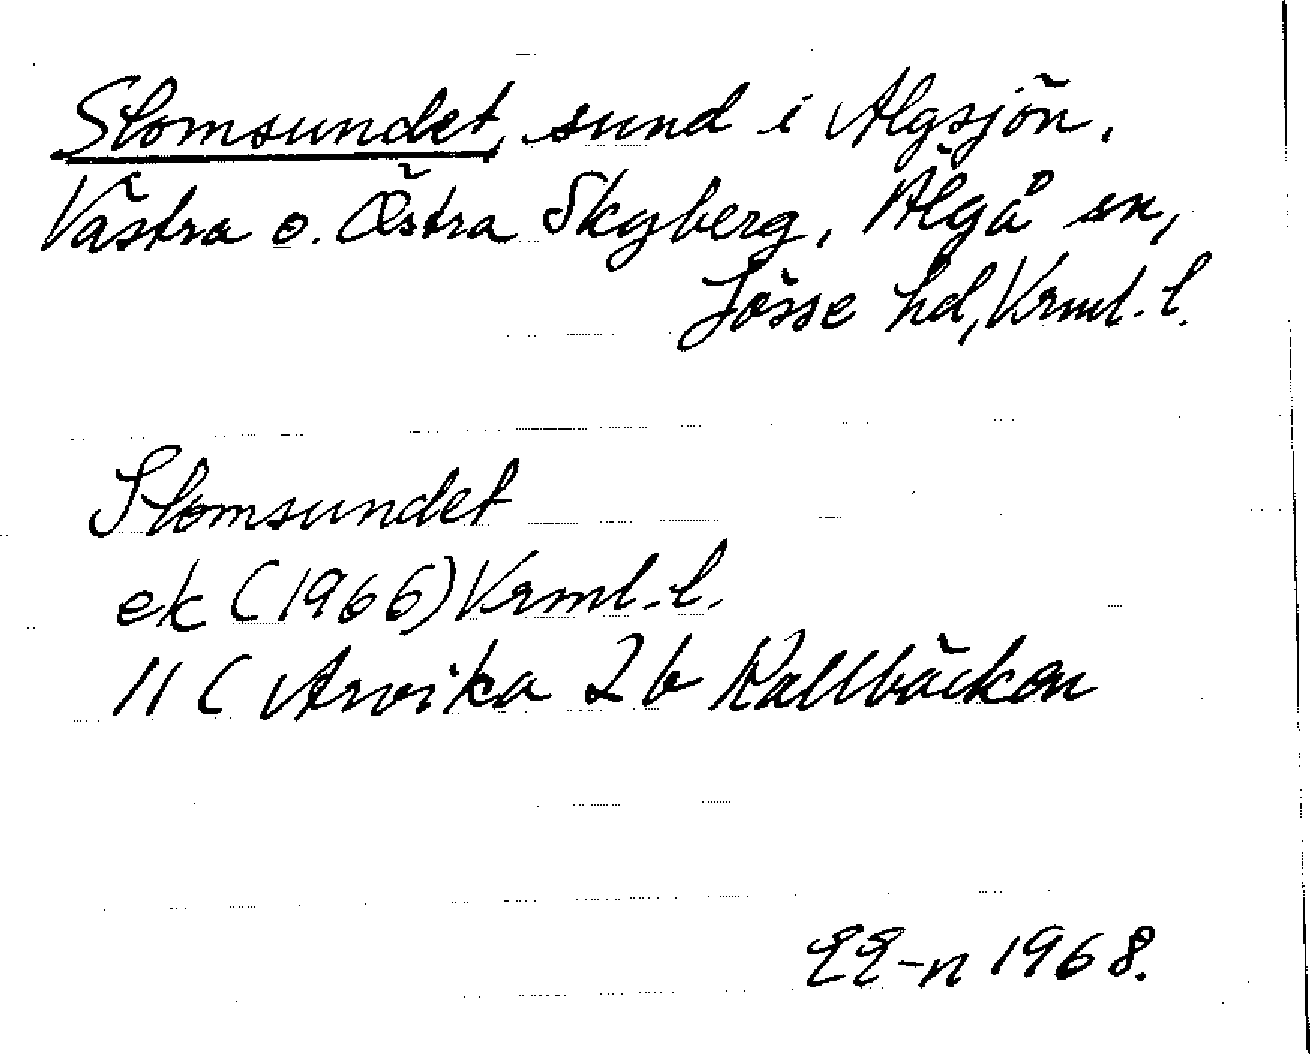 Slomsundet, sund i Älgsjön.
Västra o. Östra Skyberg, Älgå sn,
Jösse hd, Vrml. l.
Slomsundet
ek (1966) Vrml. l.
11 C Arvika 2 b Kallbäcken
EE-n 1968.